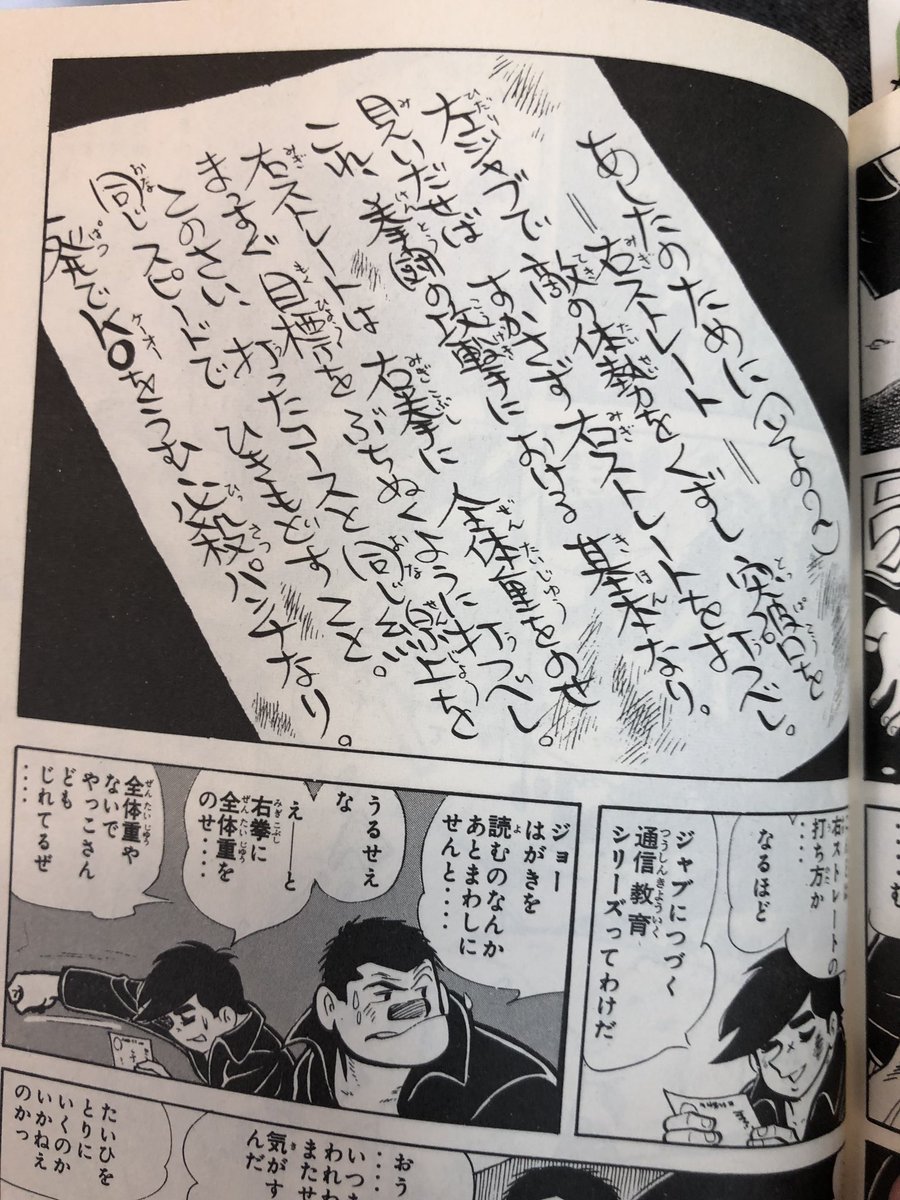 あしたのために(その2)
=右ストレート=
左ジャブで 敵の体勢をくずし 突破口を
見いだせば すかさず 右ストレートを打つべし。
これ、拳闘の攻撃における 基本なり。
右ストレートは 右拳に 全体重をのせ
まっすぐ 目標をぶちぬくように打つべし。
このさい、打ったコースと同じ線上を
同じスピードで ひきもどすこと。
一発でKOをうむ必殺パンチなり。
右ストレートの
打ち方か
‥‥
なるほど
ジャブにつづく
通信教育
シリーズってわけだ
ジョー
はがきを
読むのなんか
あとまわしに
せんと‥‥
うるせえ
な
え――と
右拳に
全体重を
のせ‥‥
全体重や
ないで
やっこさん
ども
じれてるぜ
‥‥
おう
‥‥
いつ
われわ
またせ
気がす
んだ
たいひを
とりに
いくのか
いかねえ
のかっ
‥‥む